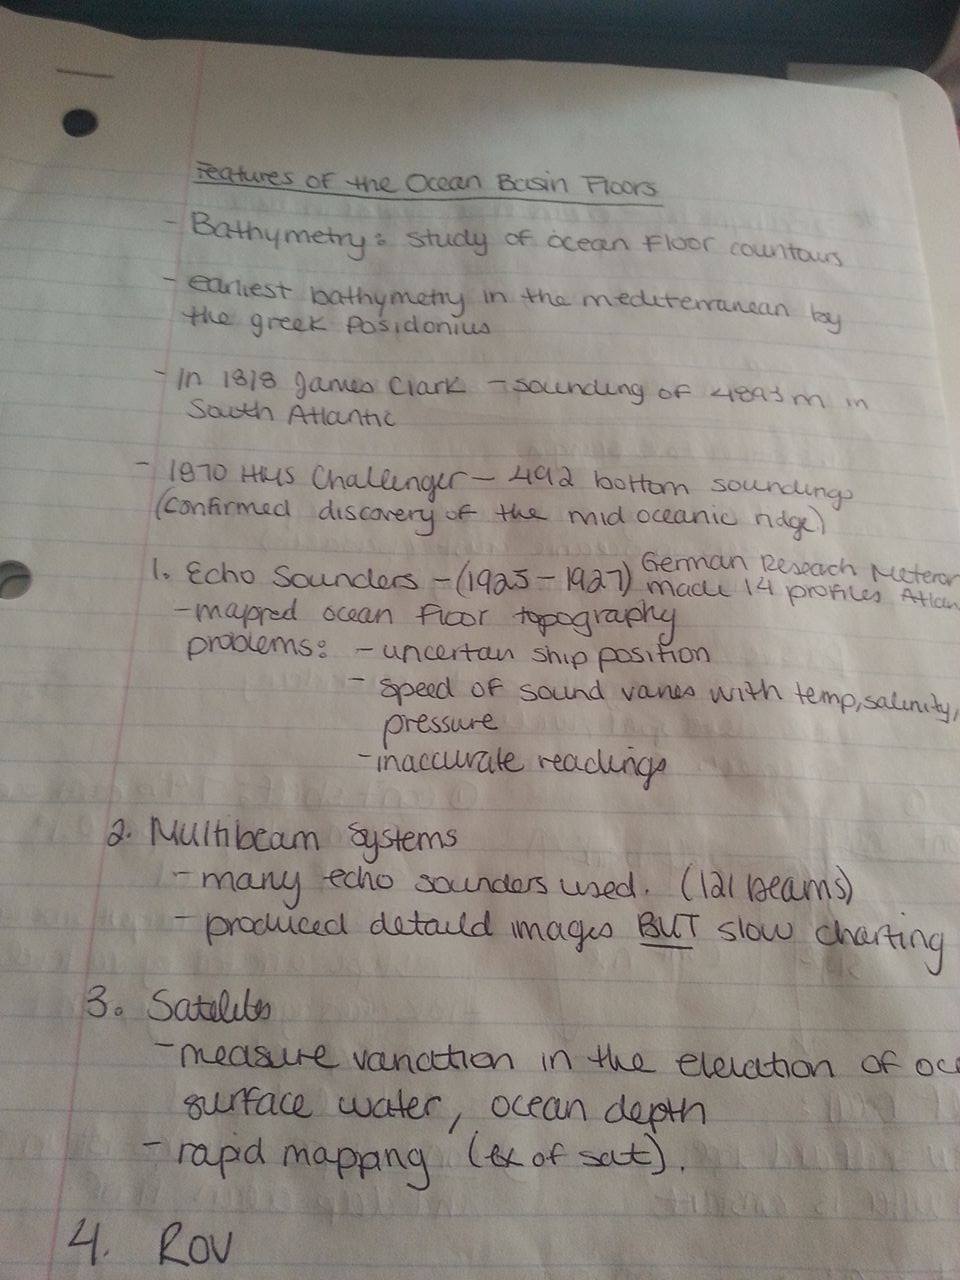 Features of the Ocean Basin Floors
- Bathymetry: study of ocean floor countours
- earliest bathymetry in the mediterranean by
the greek Posidonius
- In 1818 James Clark - sounding of 4893 m in
South Atlantic
- 1870 HMS Challenger - 492 bottom soundings
(confirmed discovery of the mid oceanic ridge)
1. Echo Sounders - (1925-1927) German Reseach Meteror
made 14 profiles Atlan
- mapped ocean floor topography
problems: - uncertan ship position
- speed of sound varies with temp, salinity,
pressure
- inaccurate readings
2. Multibeam systems
- many echo sounders used. (121 beams)
- produced detaild images BUT slow charting
3. Satelites
- measure variation in the elevation of oce
surface water, ocean depth
- rapid mapping (bc of sat).
4. ROV